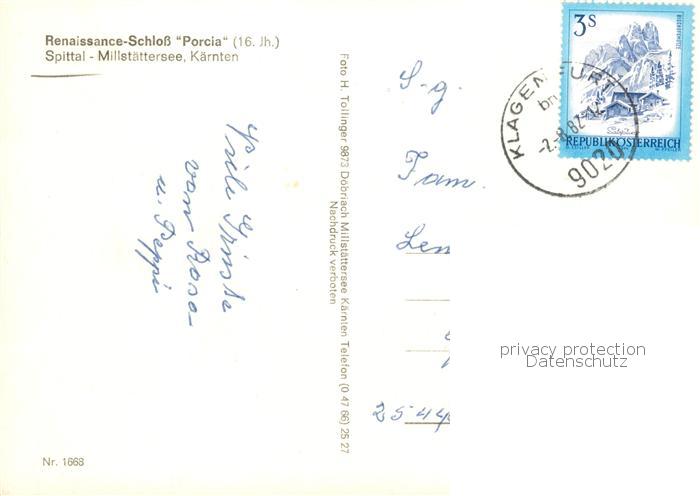 Renaissance-Schloß "Porcia" (16. Jh.)
Spittal - Millstättersee, Kärnten
Viele Grüsse
von Rosa
u. Peppi
Nr. 1668
Foto H. Tollinger 9873 Döbriach Millstättersee Kärnten Telefon (0 47 66) 25 27
Nachdruck verboten
S.g.
Fam.
Len
2544
3S
BISCHOFSMÜTZE
Salzburg
REPUBLIK ÖSTERREICH
KLAGENFURT
-2.-8.82-12
9020
privacy protection
Datenschutz